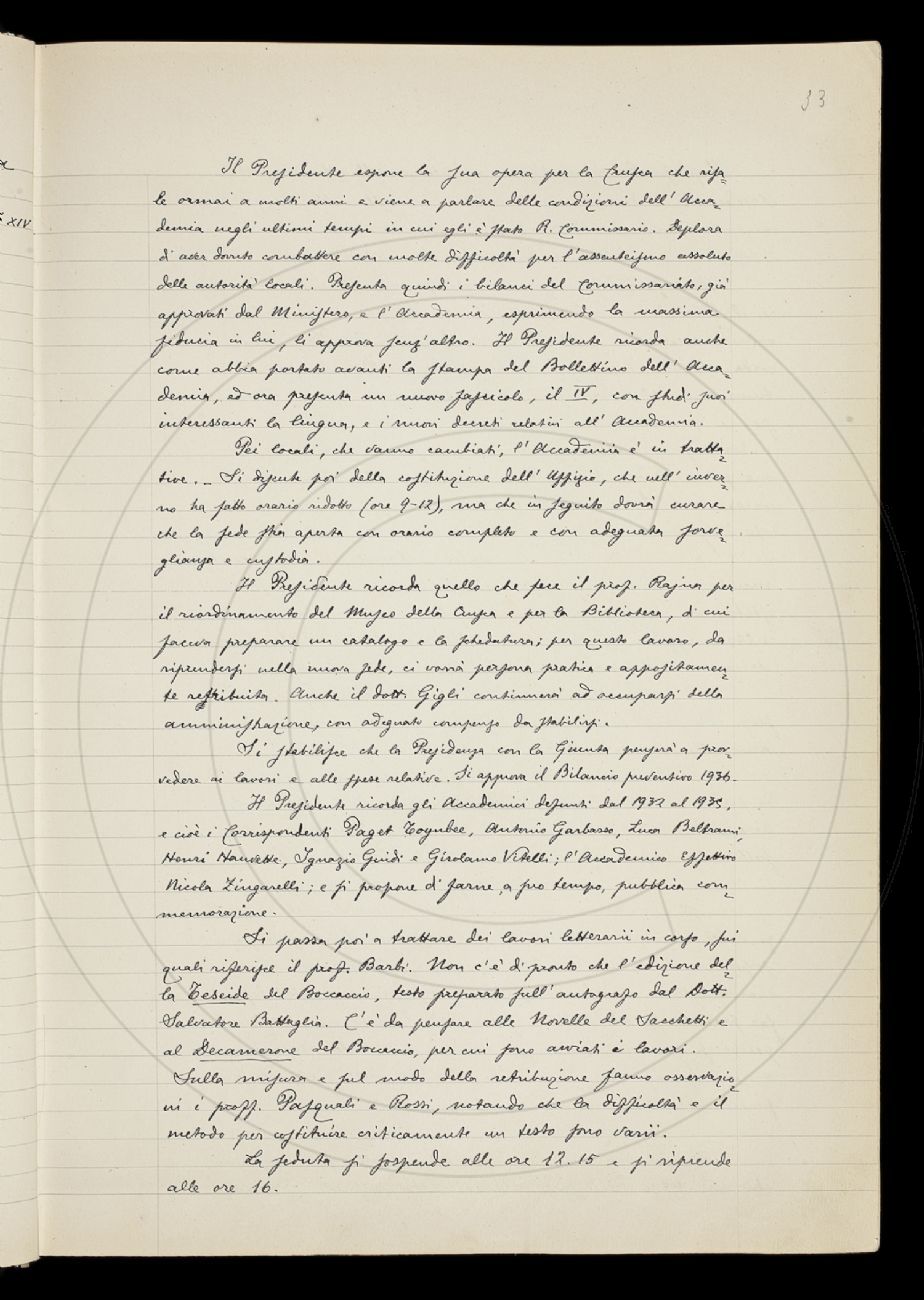 33
XIV
Il Presidente espone la sua opera per la Crusca che risa-
le ormai a molti anni e viene a parlare delle condizioni dell'Acca-
demia negli ultimi tempi in cui egli è stato R. Commissario. Deplora
di aver dovuto combattere con molte difficoltà per l'assenteismo assoluto
delle autorità locali. Presenta quindi i bilanci del Commissariato, già
approvati dal Ministero, e l'Accademia, esprimendo la massima
fiducia in lui, li approva senz'altro. Il Presidente ricorda anche
come abbia portato avanti la stampa del Bollettino dell'Acca-
demia, ed ora presenta un nuovo fascicolo, il IV, con studi suoi
interessanti la lingua, e i nuovi decreti relativi all'Accademia.
Pei locali, che vanno cambiati, l'Accademia è in tratta-
tive. - Si discute poi della costituzione dell'Uffizio, che nell'inver-
no ha fatto orario ridotto (ore 9-12), ma che in seguito dovrà curare
che la sede stia aperta con orario completo e con adeguata sorve-
glianza e custodia.
Il Presidente ricorda quello che fece il prof. Rajna per
il riordinamento del Museo della Crusca e per la Biblioteca, di cui
faceva preparare un catalogo e la schedatura; per questo lavoro, da
riprendersi nella nuova sede, ci vorrà persona pratica e appositamen-
te retribuita. Anche il dott. Gigli continuerà ad occuparsi della
amministrazione, con adeguato compenso da stabilirsi.
Si stabilisce che la Presidenza con la Giunta penserà a prov-
vedere ai lavori e alle spese relative. Si approva il Bilancio preventivo 1936.
Il Presidente ricorda gli Accademici defunti dal 1932 al 1935,
e cioè i Corrispondenti Paget Toynbee, Antonio Garbasso, Luca Beltrami,
Henri Hauvette, Ignazio Guidi e Girolamo Vitelli; l'Accademico Effettivo
Nicola Zingarelli; e si propone di farne, a suo tempo, pubblica com-
memorazione.
Si passa poi a trattare dei lavori letterarii in corso, sui
quali riferisce il prof. Barbi. Non c'è di pronto che l'edizione del-
la Teseide del Boccaccio, testo preparato sull'autografo dal Dott.
Salvatore Battaglia. C'è da pensare alle Novelle del Sacchetti e
al Decamerone del Boccaccio, per cui sono avviati i lavori.
Sulla misura e sul modo della retribuzione fanno osservazio-
ni i proff. Pasquali e Rossi, notando che la difficoltà e il
metodo per costituire criticamente un testo sono varii.
La seduta si sospende alle ore 12.15 e si riprende
alle ore 16.